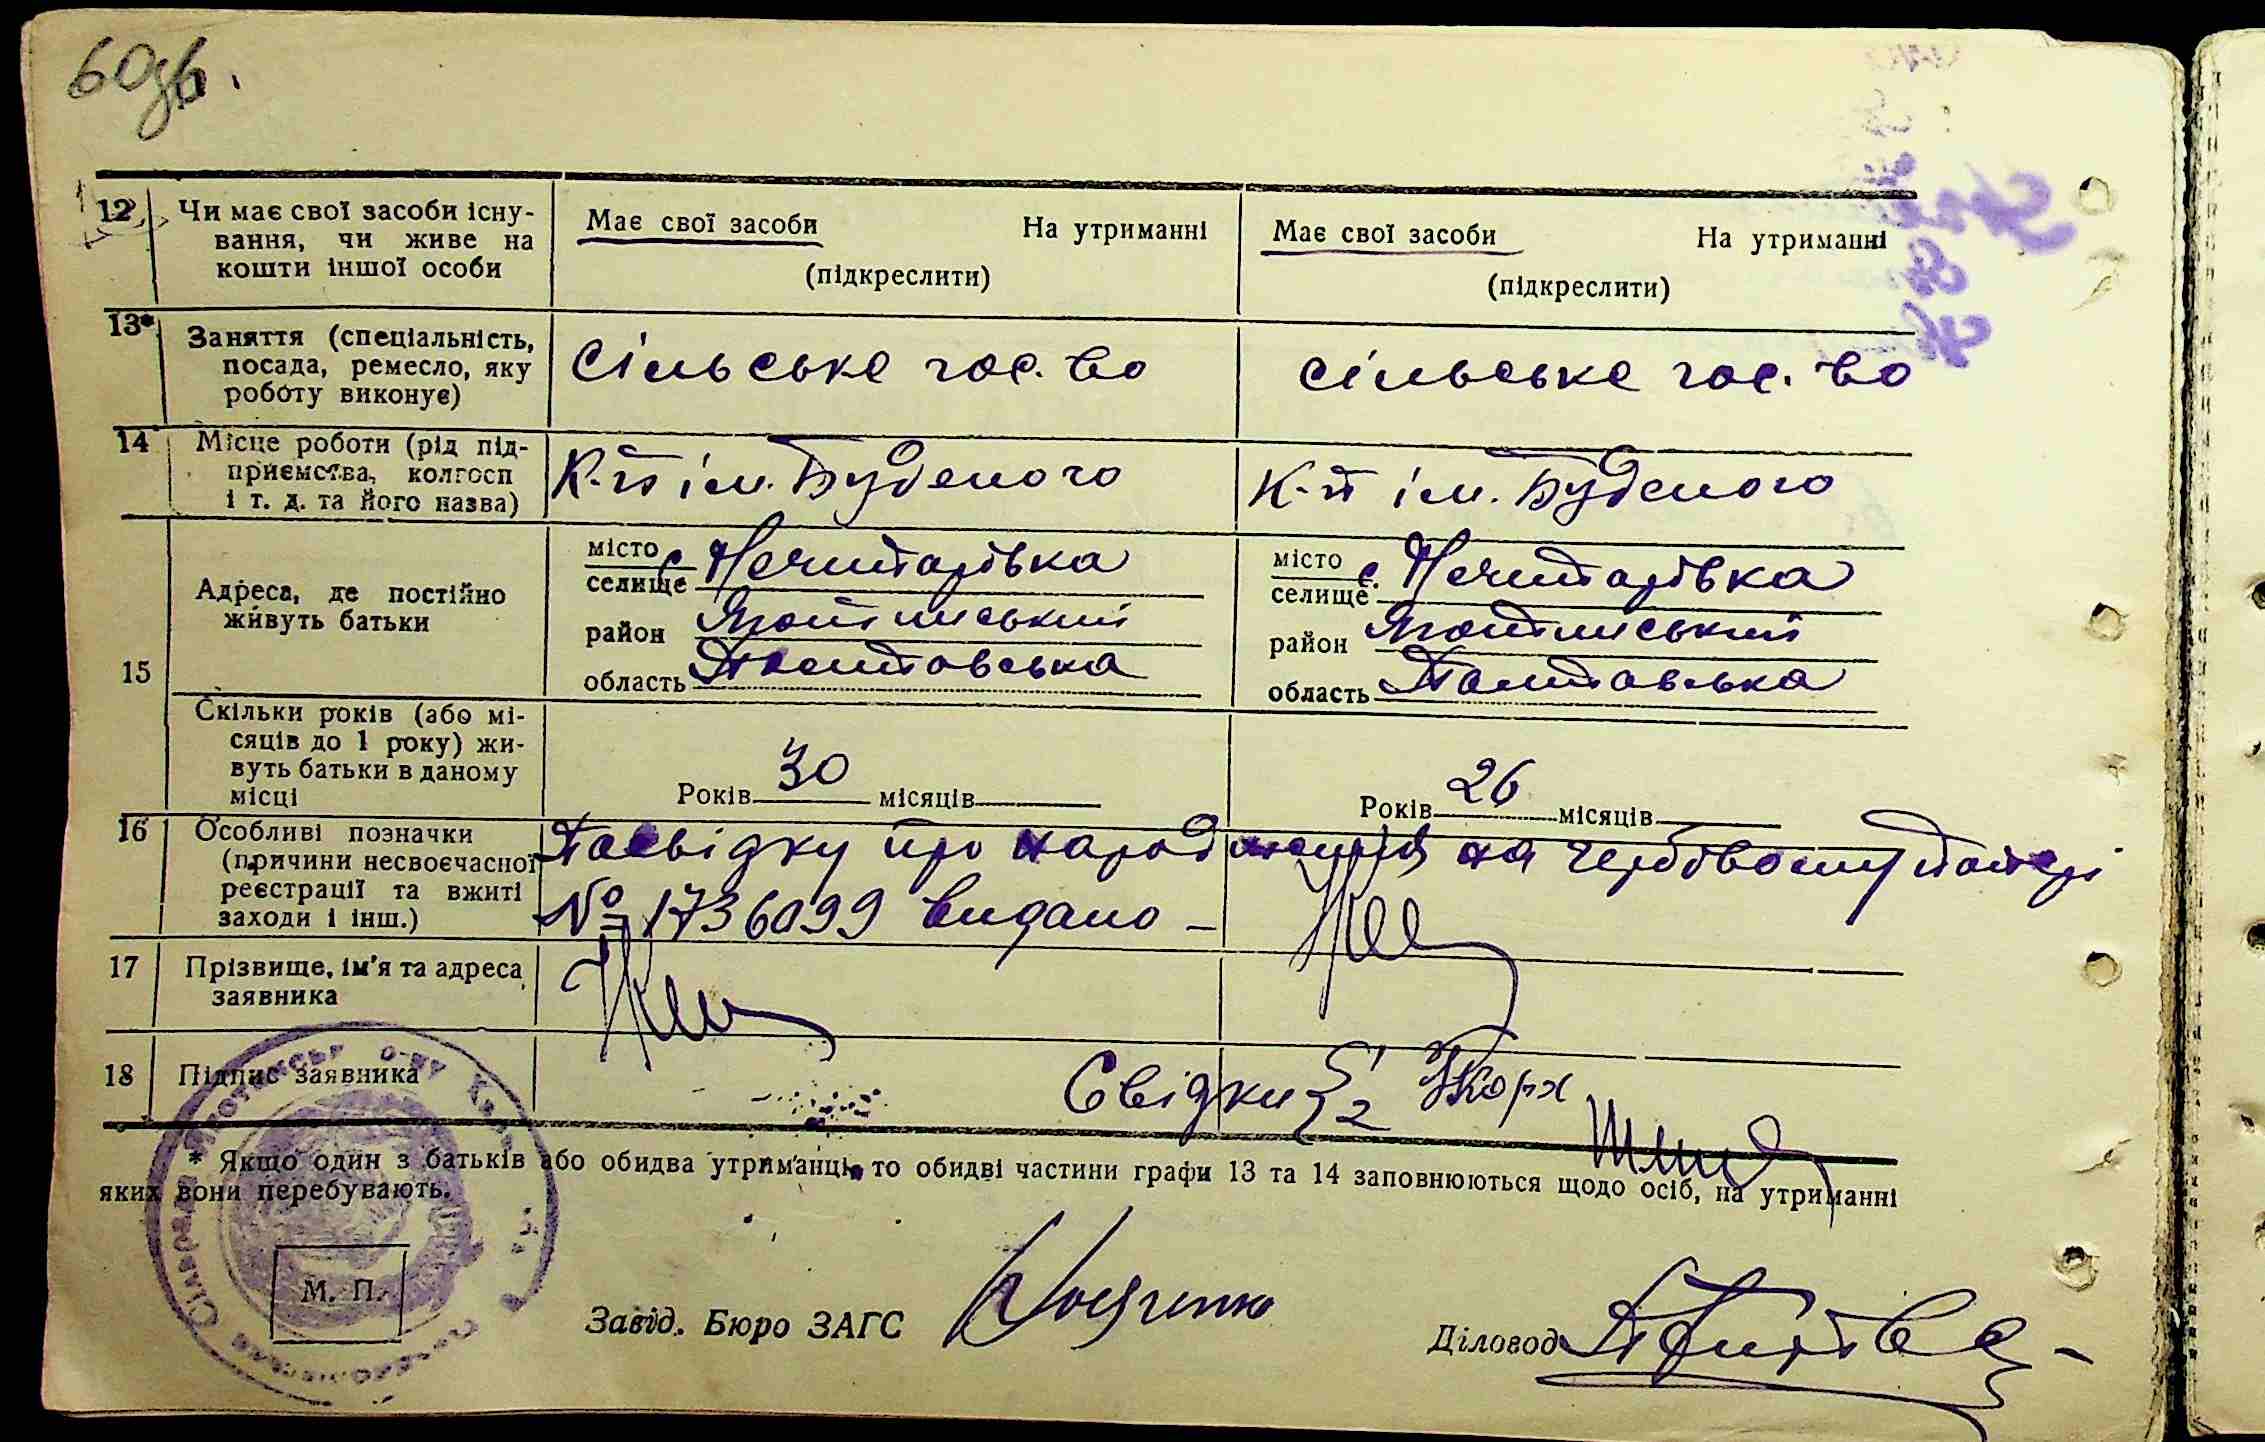 60 зв.
12 Чи має свої засоби існу-
вання, чи живе на
кошти іншої особи
Має свої засоби На утриманні
(підкреслити)
Має свої засоби На утриманні
(підкреслити)
13* Заняття (спеціальність,
посада, ремесло, яку
роботу виконує)
Сільське гос. во
сільське гос. во
14 Місце роботи (рід під-
приємства, колгосп
і т. д. та його назва)
К-п ім. Буденого
К-п ім. Буденого
15
Адреса, де постійно
живуть батьки
місто
селище с Нечипорівка
район Яготинський
область Полтавська
місто
селище с. Нечипорівка
район Яготинський
область Полтавська
Скільки років (або мі-
сяців до 1 року) жи-
вуть батьки в даному
місці
Років 30 місяців
Років 26 місяців
16 Особливі позначки
(причини несвоєчасної
реєстрації та вжиті
заходи і інш.)
Посвідку про народження на гербовому папері
№ 1736099 видано –
17 Прізвище, ім'я та адреса
заявника
18 Підпис заявника
Свідки 1 Корж
2
* Якщо один з батьків або обидва утриманці, то обидві частини графи 13 та 14 заповнюються щодо осіб, на утриманні
яких вони перебувають.
М. П.
Завід. Бюро ЗАГС
Діловод